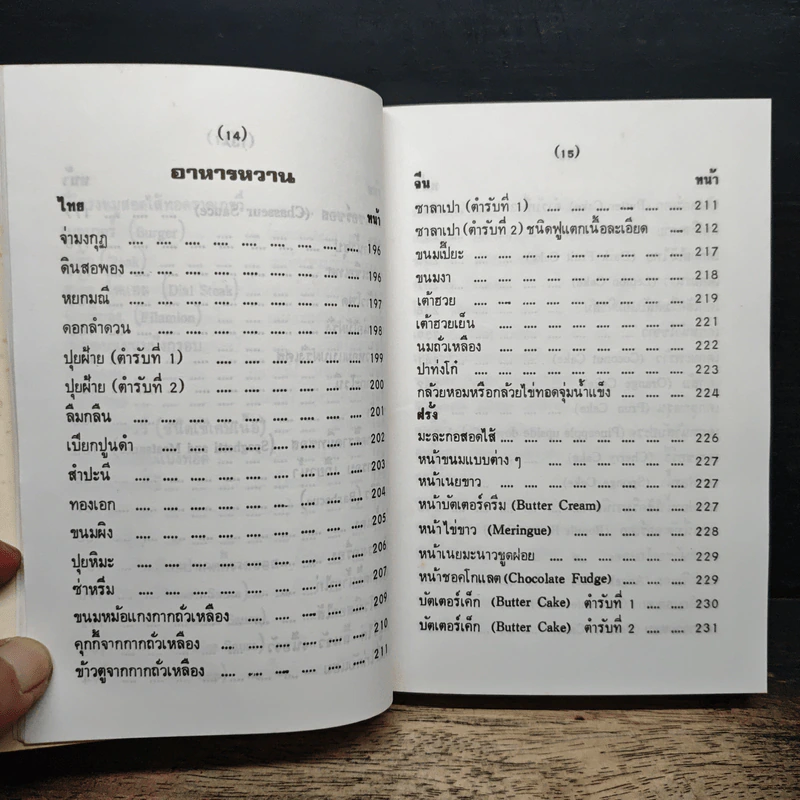 (14)
อาหารหวาน
ไทย หน้า
จ่ามงกุฎ .... .... .... .... .... .... .... .... .... 196
ดินสอพอง .... .... .... .... .... .... .... .... .... 196
หยกมณี .... .... .... .... .... .... .... .... .... 197
ดอกลำดวน .... .... .... .... .... .... .... .... 198
ปุยฝ้าย (ตำรับที่ 1) .... .... .... .... .... .... .... 199
ปุยฝ้าย (ตำรับที่ 2) .... .... .... .... .... .... .... 200
ลืมกลืน .... .... .... .... .... .... .... .... .... 201
เปียกปูนดำ .... .... .... .... .... .... .... .... 202
สำปะนี .... .... .... .... .... .... .... .... .... 203
ทองเอก .... .... .... .... .... .... .... .... .... 204
ขนมผิง .... .... .... .... .... .... .... .... .... 205
ปุยหิมะ .... .... .... .... .... .... .... .... .... 206
ซ่าหริ่ม .... .... .... .... .... .... .... .... .... 207
ขนมหม้อแกงกากถั่วเหลือง .... .... .... .... .... 209
คุกกี้จากกากถั่วเหลือง .... .... .... .... .... .... 210
ข้าวตูจากกากถั่วเหลือง .... .... .... .... .... .... 211
(15)
จีน หน้า
ซาลาเปา (ตำรับที่ 1) .... .... .... .... .... .... 211
ซาลาเปา (ตำรับที่ 2) ชนิดฟูแตกเนื้อละเอียด .... 212
ขนมเปี๊ยะ .... .... .... .... .... .... .... .... .... 217
ขนมงา .... .... .... .... .... .... .... .... .... 218
เต้าฮวย .... .... .... .... .... .... .... .... .... 219
เต้าฮวยเย็น .... .... .... .... .... .... .... .... 221
นมถั่วเหลือง .... .... .... .... .... .... .... .... 222
ปาท่งโก๋ .... .... .... .... .... .... .... .... .... 223
กล้วยหอมหรือกล้วยไข่ทอดจุ่มน้ำแข็ง .... .... .... 224
ฝรั่ง
มะละกอสอดไส้ .... .... .... .... .... .... .... 226
หน้าขนมแบบต่าง ๆ .... .... .... .... .... .... 227
หน้าเนยขาว .... .... .... .... .... .... .... .... 227
หน้าบัตเตอร์ครีม (Butter Cream) .... .... .... 227
หน้าไข่ขาว (Meringue) .... .... .... .... .... 228
หน้าเนยมะนาวขูดฝอย .... .... .... .... .... .... 229
หน้าชอคโกแลต (Chocolate Fudge) .... .... .... 229
บัตเตอร์เค็ก (Butter Cake) ตำรับที่ 1 .... .... 230
บัตเตอร์เค็ก (Butter Cake) ตำรับที่ 2 .... .... 231